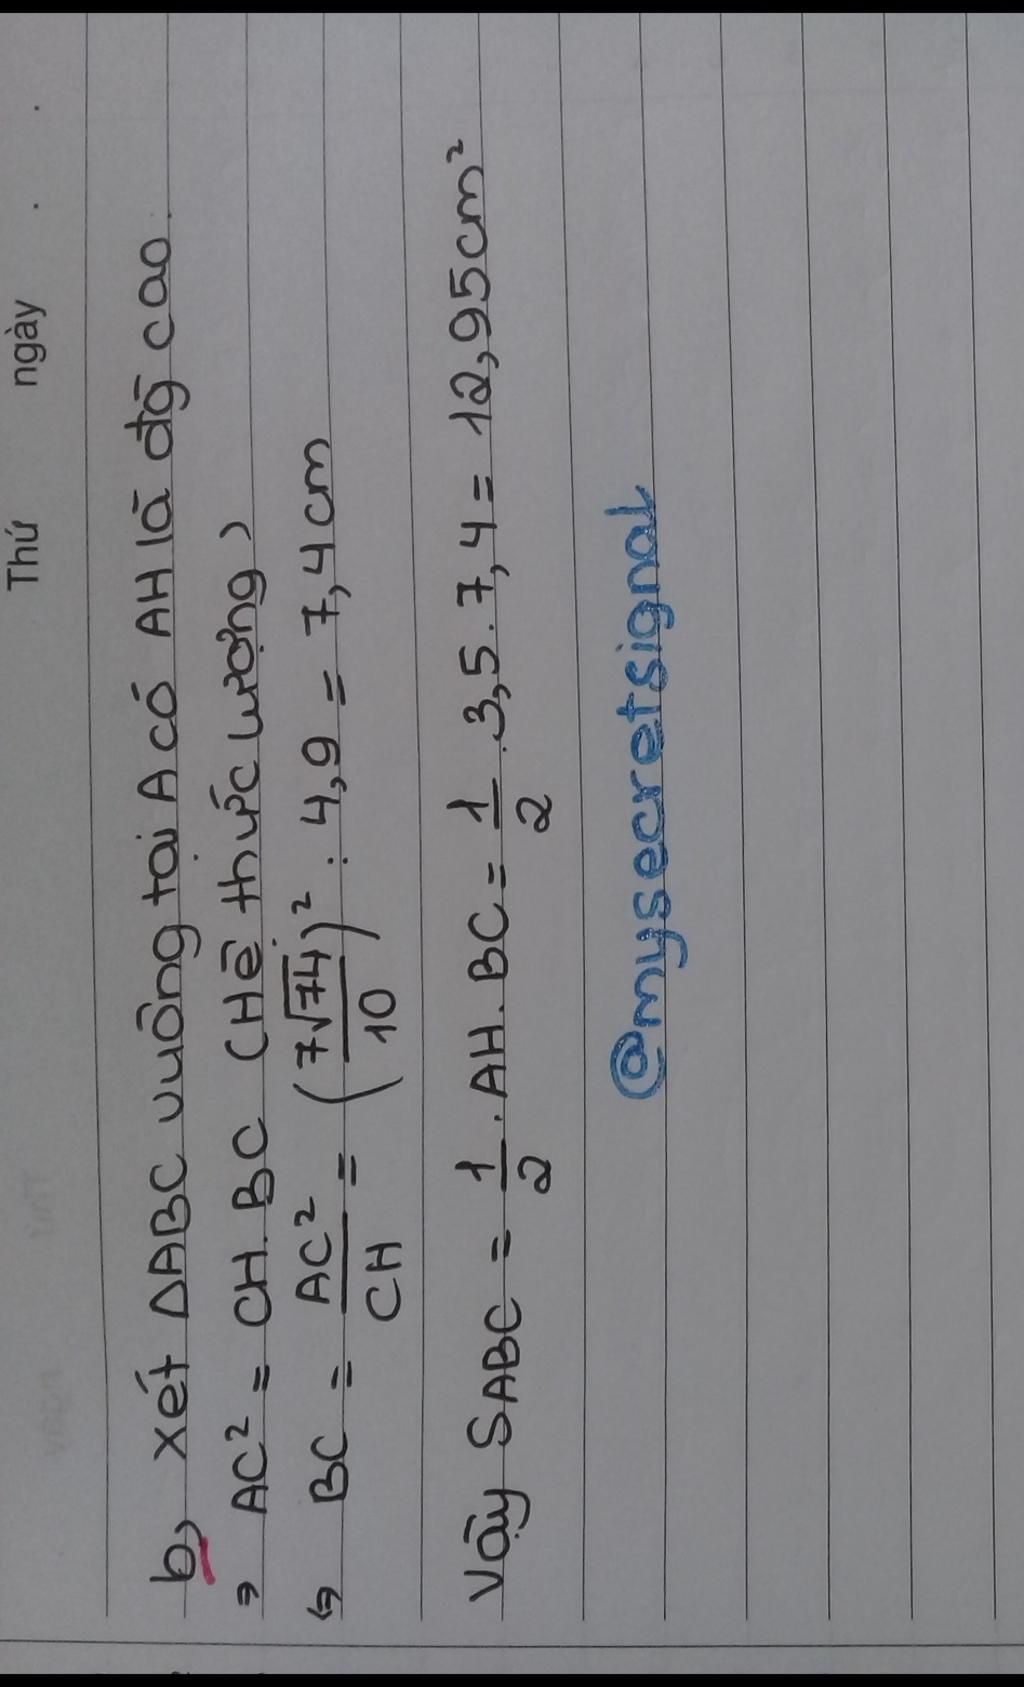 Thứ ngày
b) xét ΔABC vuông tại A có AH là độ cao.
⇒ AC² = CH.BC (Hệ thức lượng)
⇔ BC = AC²/CH = (7√74/10)² : 4,9 = 7,4cm
Vậy SABC = 1/2 . AH . BC = 1/2 . 3,5 . 7,4 = 12,95cm²
@mysecretsignal